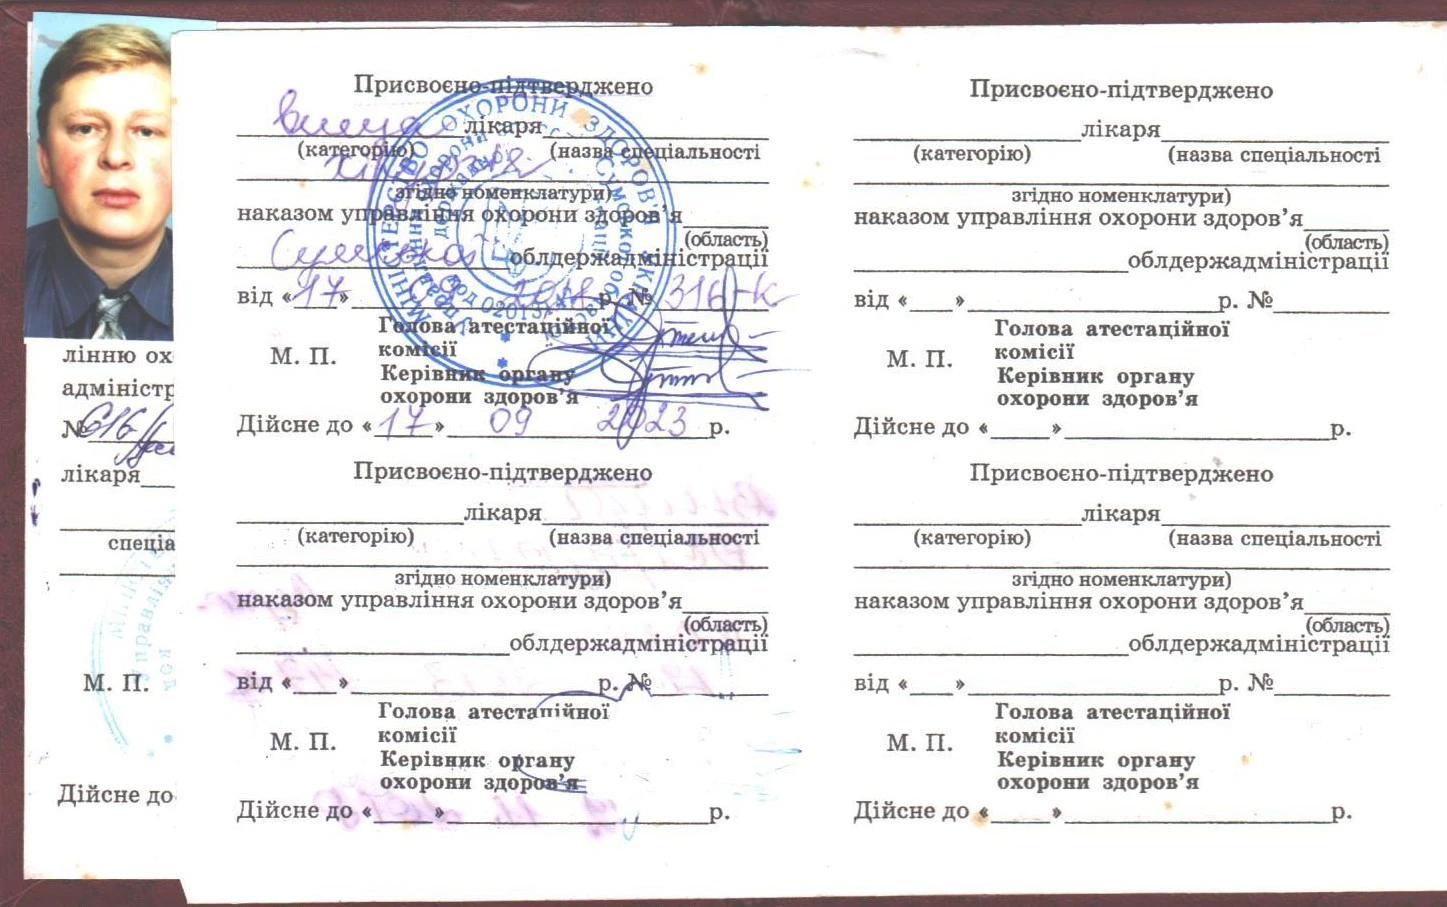 лінню ох
адміністр
№ 616
лікаря
спеціа
М. П.
Дійсне до
Присвоєно-підтверджено
вища лікаря
(категорію) (назва спеціальності
хірурга
згідно номенклатури)
наказом управління охорони здоров’я
(область)
Сумської облдержадміністрації
від «17» 09 2018 р. № 316-К
Голова атестаційної
М. П. комісії
Керівник органу
охорони здоров’я
Дійсне до «17» 09 2023 р.
МІНІСТЕРСТВО ОХОРОНИ ЗДОРОВ'Я УКРАЇНИ
Присвоєно-підтверджено
лікаря
(категорію) (назва спеціальності
згідно номенклатури)
наказом управління охорони здоров’я
(область)
облдержадміністрації
від « » р. №
Голова атестаційної
М. П. комісії
Керівник органу
охорони здоров’я
Дійсне до « » р.
Присвоєно-підтверджено
лікаря
(категорію) (назва спеціальності
згідно номенклатури)
наказом управління охорони здоров’я
(область)
облдержадміністрації
від « » р. №
Голова атестаційної
М. П. комісії
Керівник органу
охорони здоров’я
Дійсне до « » р.
Присвоєно-підтверджено
лікаря
(категорію) (назва спеціальності
згідно номенклатури)
наказом управління охорони здоров’я
(область)
облдержадміністрації
від « » р. №
Голова атестаційної
М. П. комісії
Керівник органу
охорони здоров’я
Дійсне до « » р.